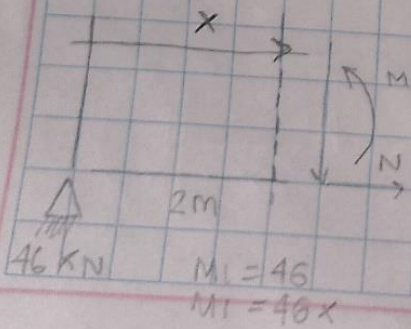 x
M
N
2m
46 KN
M1 = 46
M1 = 46x